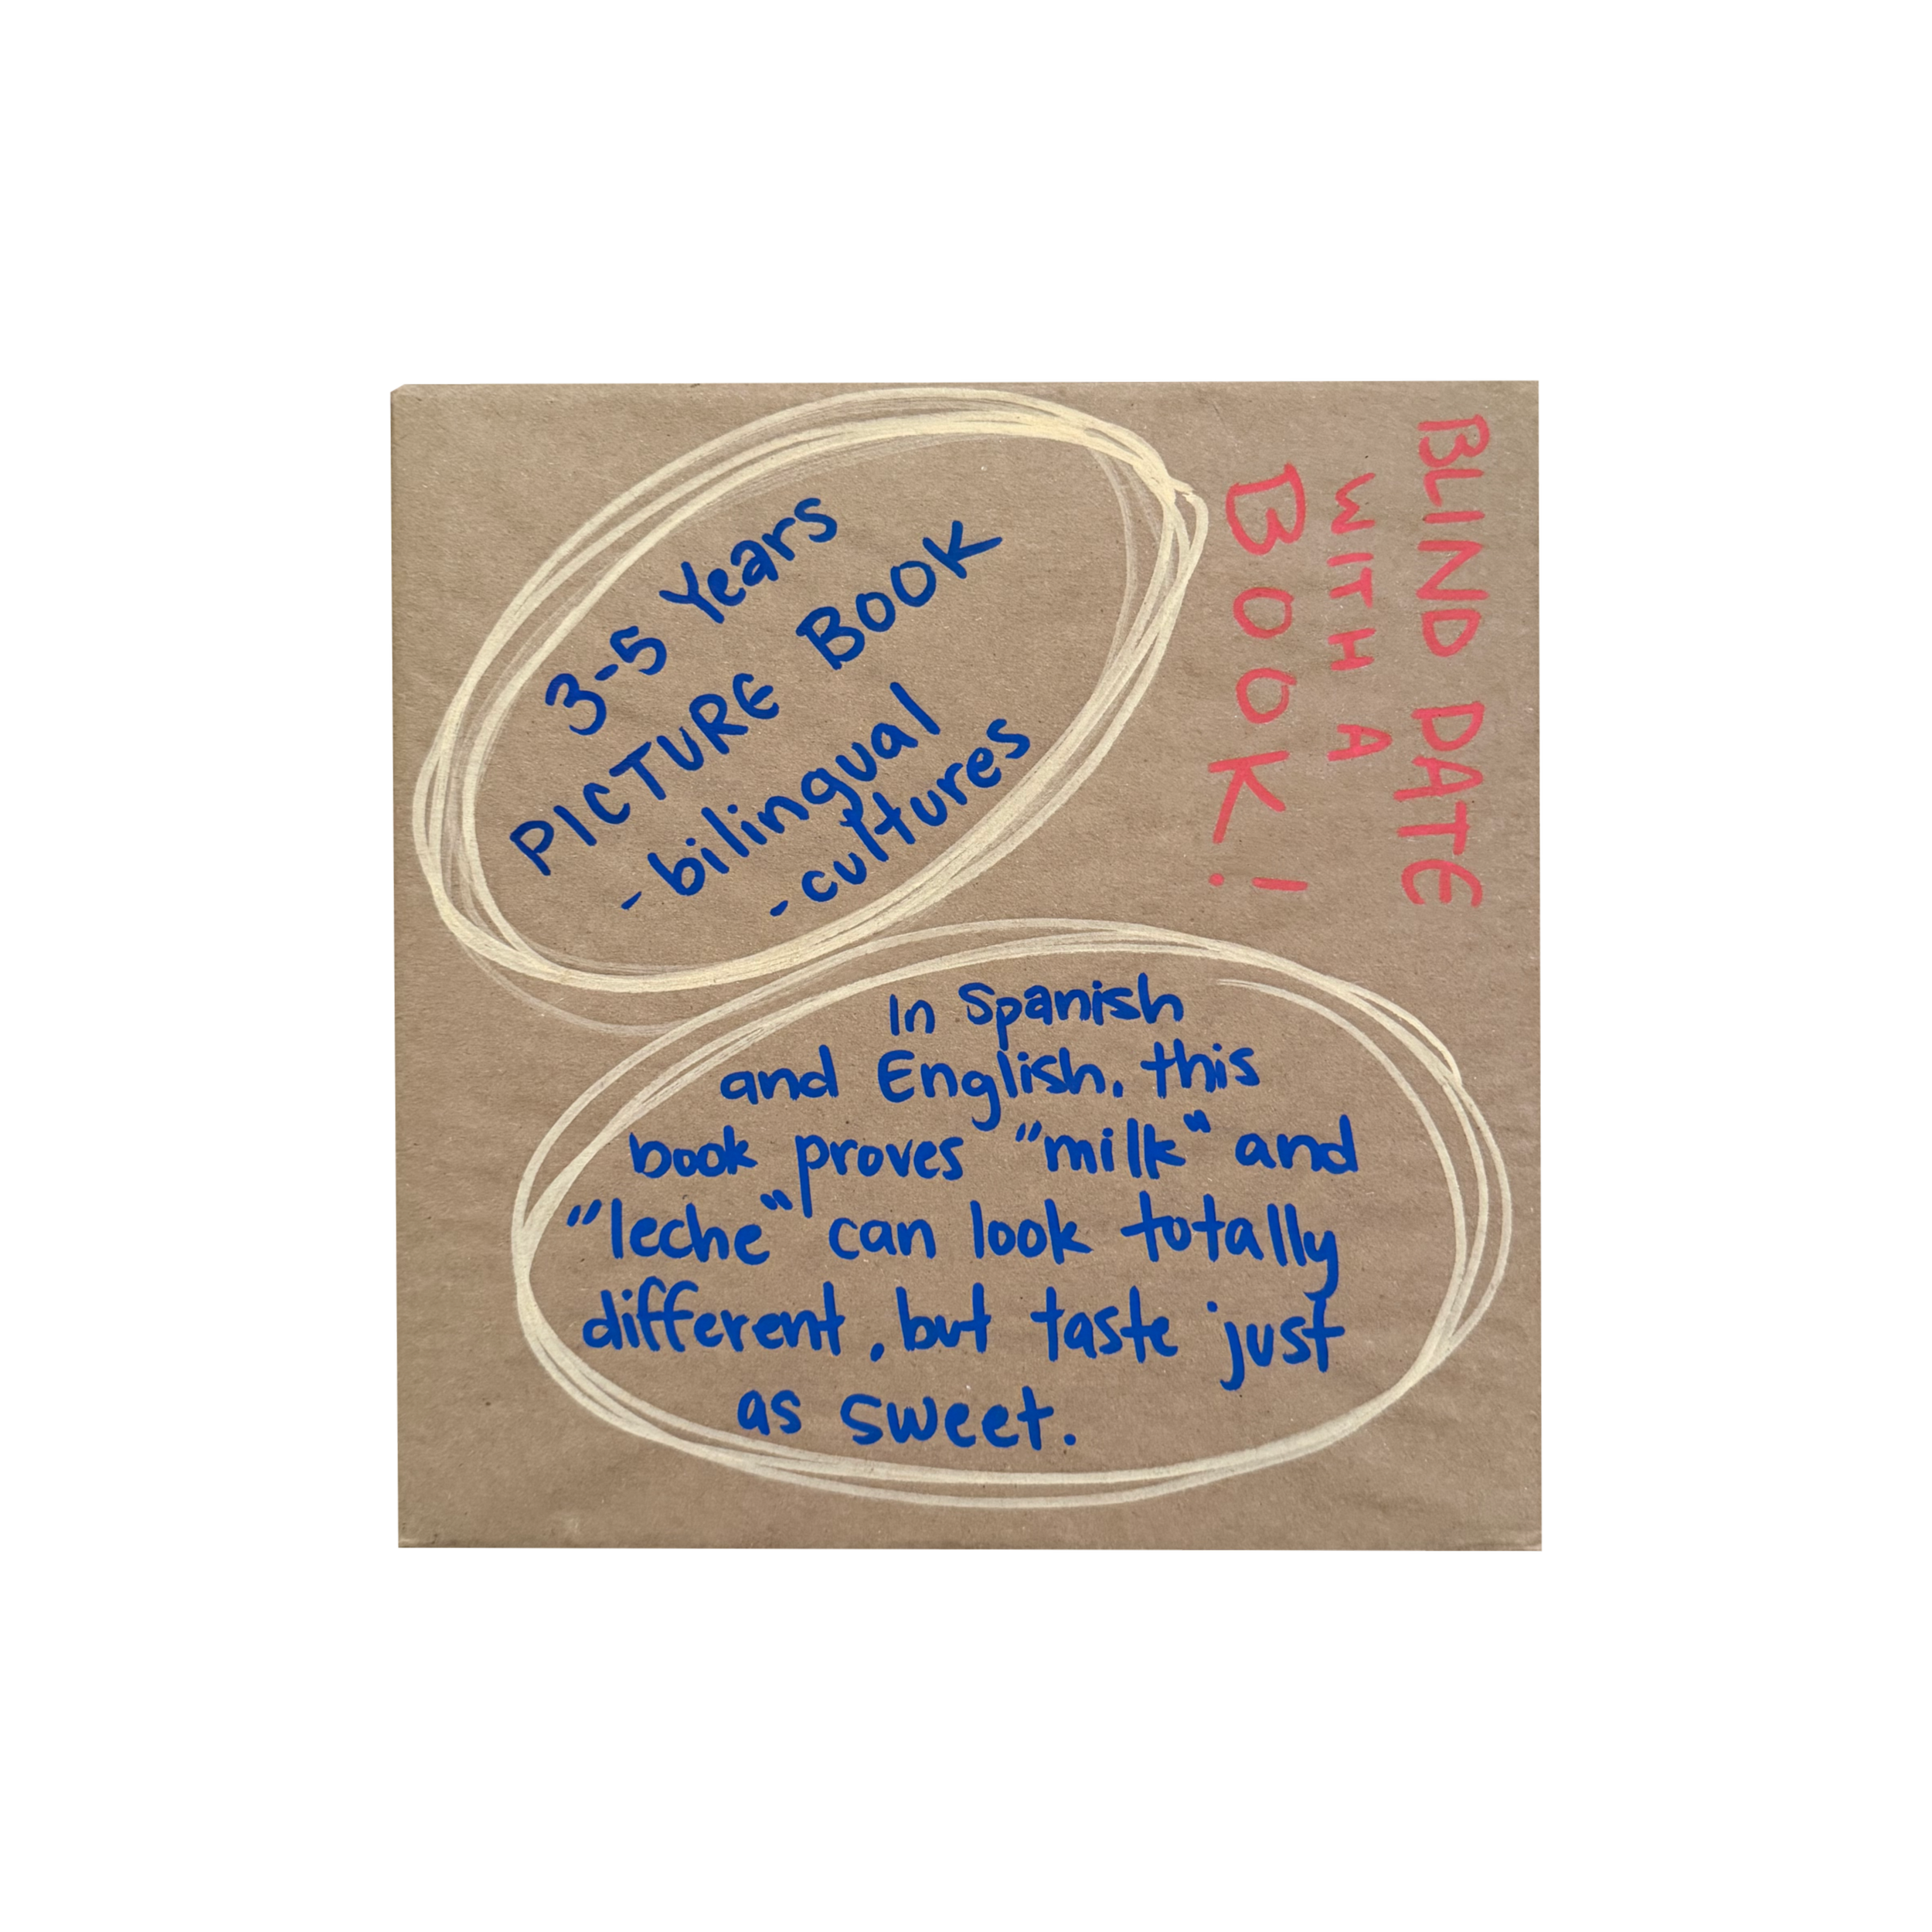 BLIND DATE
WITH A
BOOK!
3-5 Years
PICTURE BOOK
-bilingual
-cultures
In Spanish
and English, this
book proves "milk" and
"leche" can look totally
different, but taste just
as sweet.